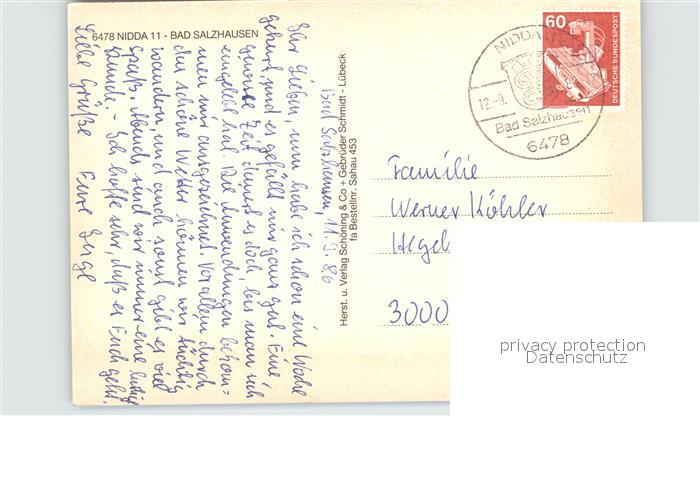 6478 NIDDA 11 - BAD SALZHAUSEN
Bad Salzhausen, 11.9.86
Ihr Lieben, nun habe ich schon eine Woche
gekurt, und es gefällt mir ganz gut. Eine
gewisse Zeit dauert es doch, bis man sich
eingelebt hat. Die Anwendungen bekom-
men mir ausgezeichnet. Vor allem durch
das schöne Wetter können wir tüchtig
wandern, und auch sonst gibt es viel
Spaß. Abends sind wir immer eine lustige
Runde. - Ich hoffe sehr, daß es Euch geht.
Liebe Grüße Eure Inge
Herst. u. Verlag Schöning & Co + Gebrüder Schmidt - Lübeck
fa Bestellnr. Sahau 453
60
DEUTSCHE BUNDESPOST
NIDDA
12.-9.
Bad Salzhausen
6478
Familie
Werner Köhler
Hegel
3000
privacy protection
Datenschutz